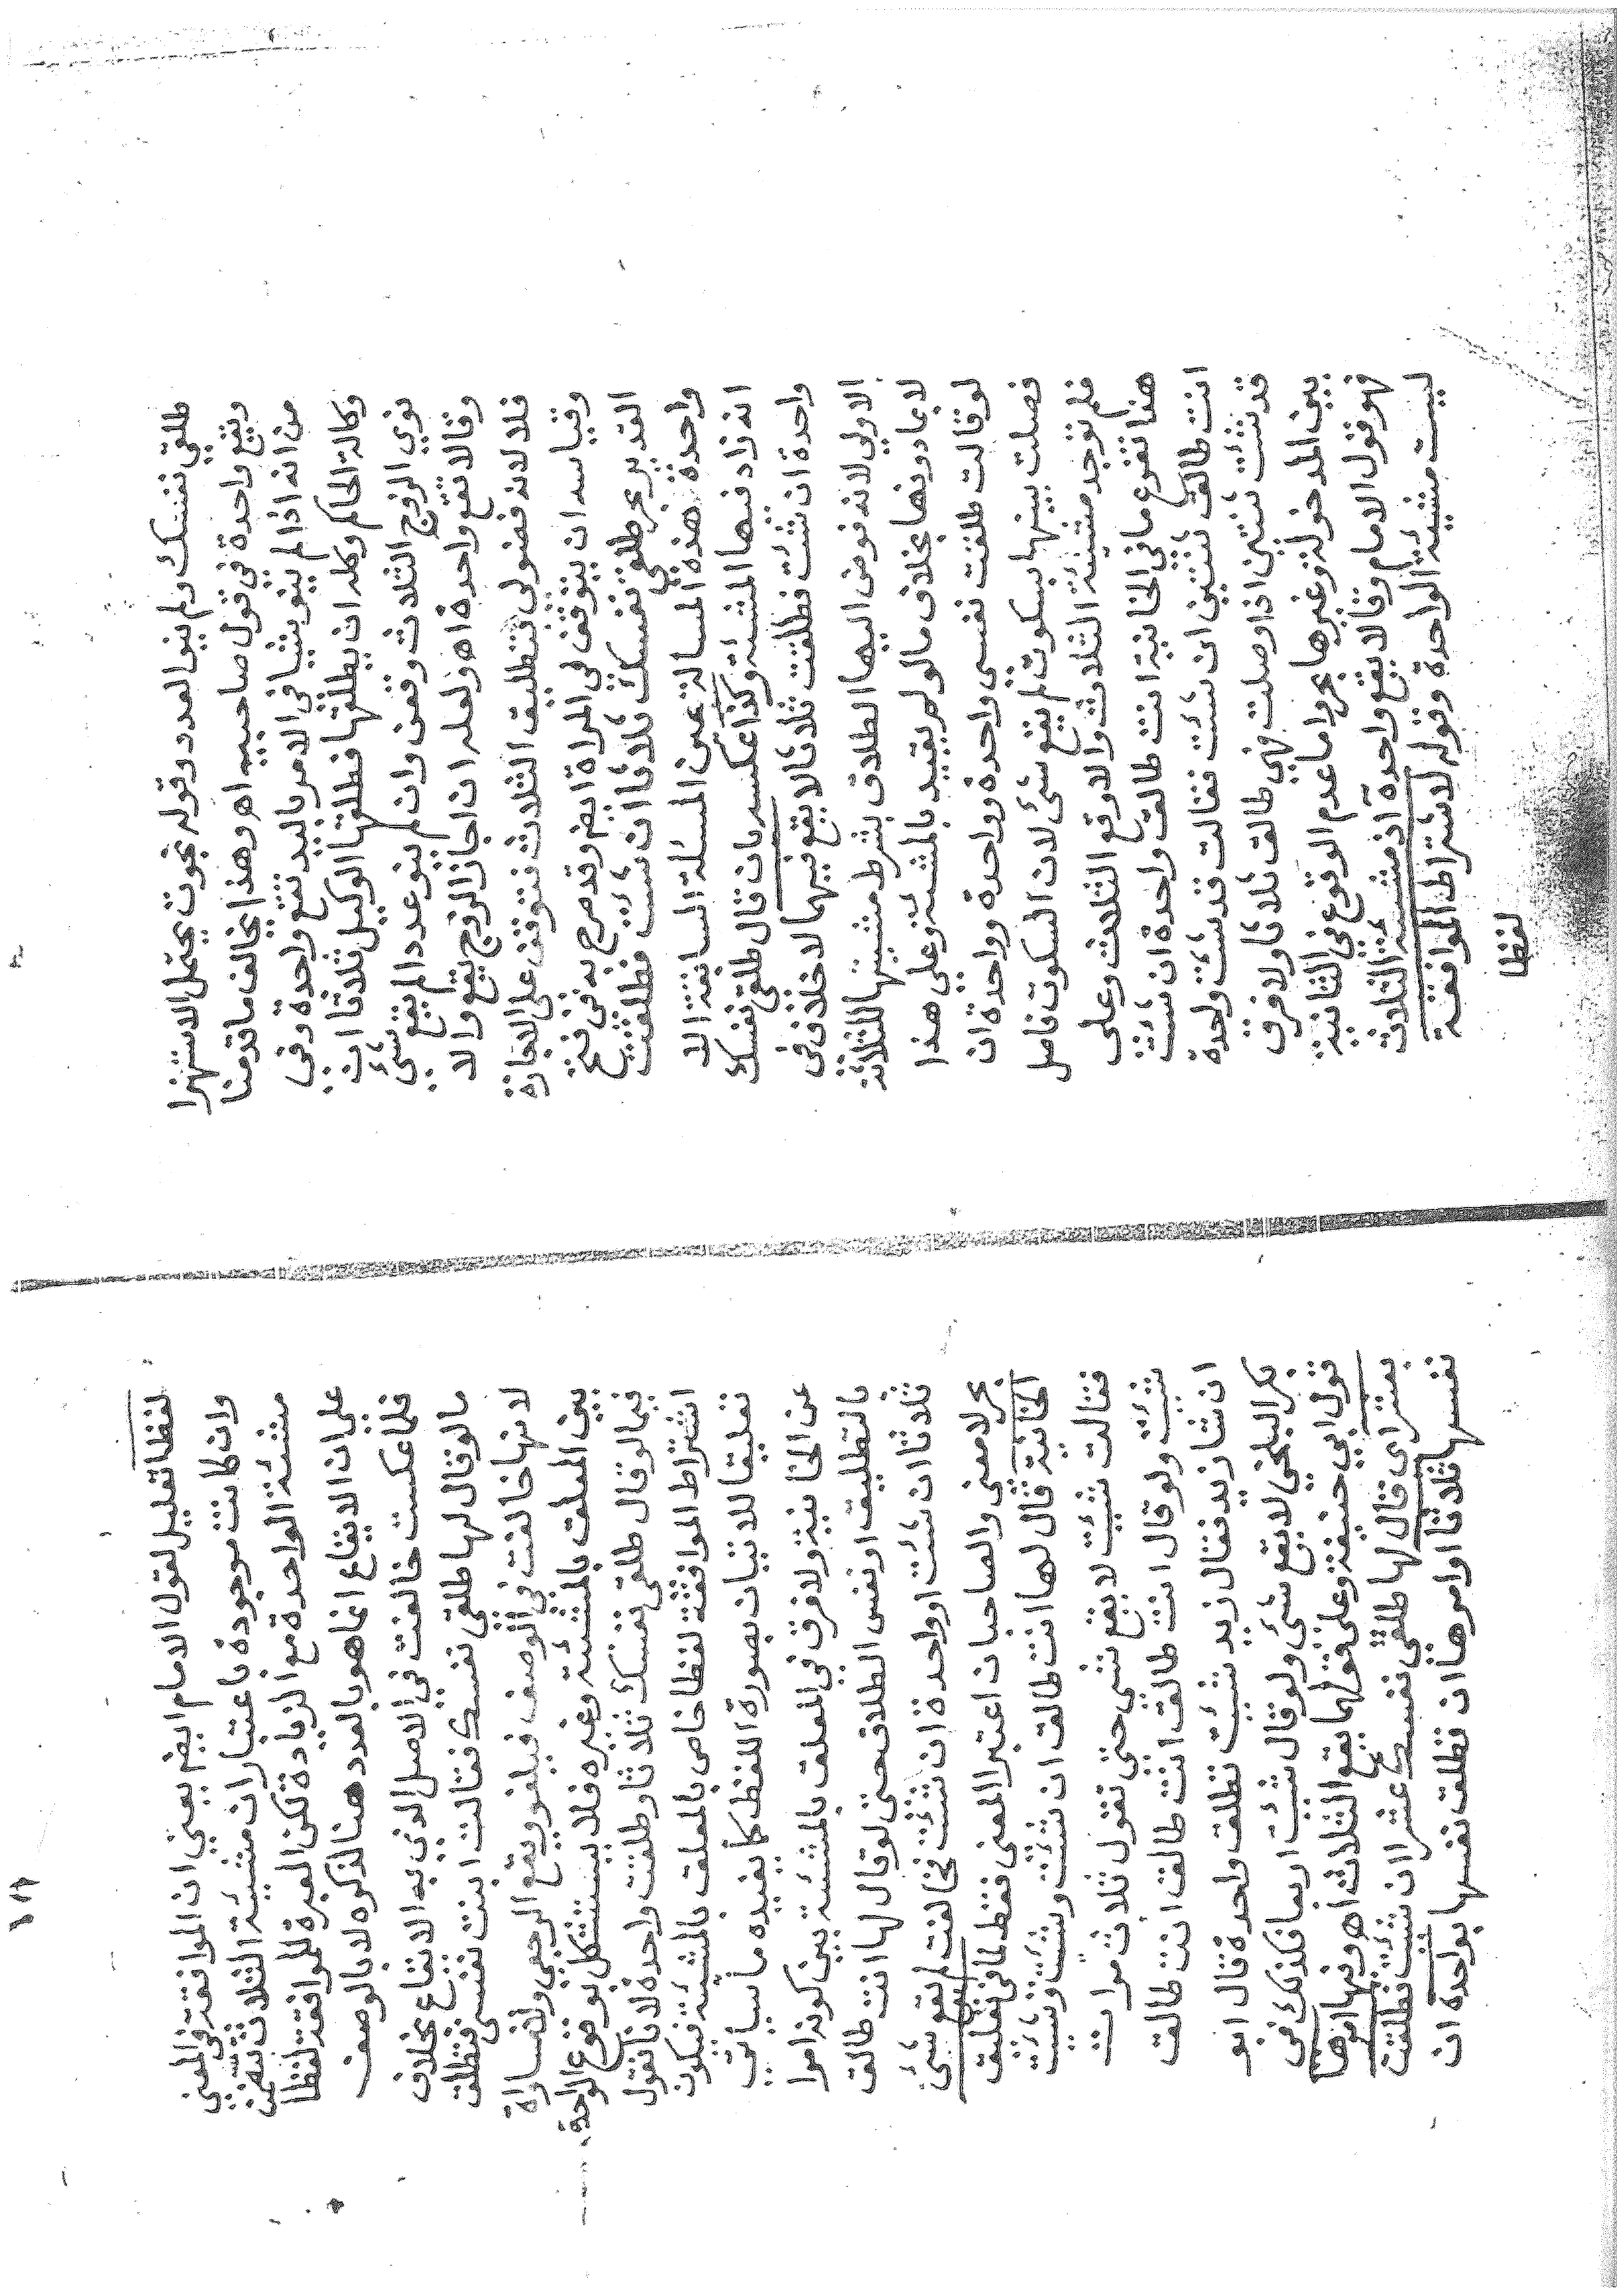 طلقي نفسك ولم ينو العدد وقوله نجوت يحتمل الاستهزا
ويقع واحدة في قول صاحبيه اهـ وهذا يخالف ما قدمنا
من انه اذا لم ينو شيئا في الامر باليد تقع واحدة وفي
وكالة الحاكم وكله ان يطلقها فطلقها الوكيل ثلاثا ان
نوي الزوج الثلاث وقعن وان لم ينو عددا لم يقع شئ
وقالا تقع واحدة اهـ ولعله ان اجاز الزوج يقع والا
فلا لانه فضولي فتطليق الثلاث فتوقف علي اجازة
وقياسه ان يتوقف في المراة ايضا وقد صرح به في فتح
القدير بحر طلقي نفسك ثلاثا ان شئت فطلقت
واحدة هذه المسالة عين المسئلة السابقة الا
انه زاد فيها المشئة وكذا عكسه بان قال طلقي نفسك
واحدة ان شئت فطلقت ثلاثا لا يقع فيهما لاخلاف في
الاولي لانه فوض اليها الطلاق بشرط مشيتها للثلاثة
لا بما دونها بخلاف مالو لم يقيد بالمشئة وعلي هذا
لو قالت طلقت نفسي واحدة وواحدة وواحدة ان
فصلت بينها بسكوت لم يقع شئ لان السكوت فاصل
فلم توجد مشيئة الثلاث والا وقع الثلاث وعلي
هذا تفرع ما في الخانية انت طالق واحدة ان شئت
انت طالق ثنتين ان شئت فقالت قد شئت واحدة
قد شئت ثنتين اذا وصلت فهي طالق ثلاثا ولا فرق
بين المدخولة وغيرها بحر واما عدم الوقوع في الثانية
فهو قول الامام وقالا يقع واحدة اذ مشئة الثلاث
ليست مشيئة الواحدة وقوله لاشتراط الموافقة
لفظا
لفظا تعليل لقول الامام ايضا يعني ان الموافقة في المعني
وان كانت موجودة باعتبار ان مشيئة الثلاث تتضمن
مشئة الواحدة مع الزيادة لكن العبرة للموافقة لفظا
علي ان الايقاع انما هو بالعدد هنا لذكره لا بالوصف
فلما عكست خالفت في الاصل الذي به الايقاع بخلاف
مالو قال لها طلقي نفسك فقالت ابنت نفسي فتطلق
لانها خالفت في الوصف فيلغو ويقع الرجعي ولامساواة
بين المعلق بالمشئة وغيره فلا يستشكل بوقوع الواحدة
فيما لو قال طلقي نفسك ثلاثا وطلقت واحدة لانا نقول
اشتراط الموافقة لفظا خاص بالمعلق بالمشيئة فيكون
تعليقا للاتيان بصورة اللفظ كما يفيده ما سياتي
عن الخانية ولا فرق في المعلق بالمشئة بين كونه امرا
بالتطليق او نفس الطلاق حتي لو قال لها انت طالق
ثلاثا ان شئت او واحدة ان شئت فخالفت لم يقع شئ
بحر لا معني والصاحبان اعتبرا المعني فقط لما في تعليق
الخانية قال لها انت طالق ان شئت وشئت وشئت
فقالت شئت لا يقع شئ حتي تقول ثلاث مرات
شئت ولو قال انت طالق انت طالق انت طالق
ان شا زيد فقال زيد شئت تطلق واحدة قال ابو
بكر البلخي لا يقع شئ ولو قال شئت اربعا فكذلك في
قول ابي حنيفة وعلي قولهما يقع الثلاث اهـ وفيها امرها
بعشر اي قال لها طلقي نفسك عشرا ان شئت فطلقت
نفسها ثلاثا او امرها ان تطلق نفسها بواحدة ان